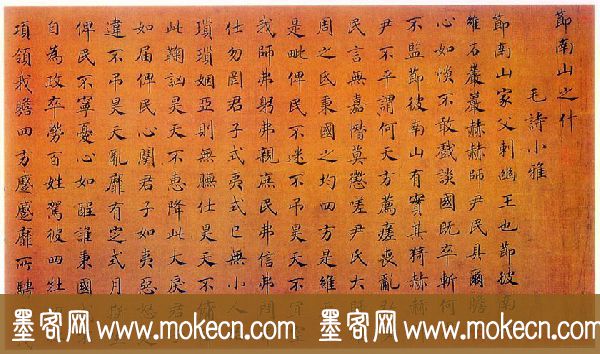 節南山之什
毛詩小雅
節南山家父刺幽王也節彼南
維石巖巖赫赫師尹民具爾瞻
心如惔不敢戲談國既卒斬何
不監節彼南山有實其猗赫赫
尹不平謂何天方薦瘥喪亂弘
民言無嘉憯莫懲嗟尹氏大師
周之氐秉國之均四方是維
是毗俾民不迷不弔昊天不宜空
我師弗躬弗親庶民弗信弗問
仕勿罔君子式夷式已無小人
瑣瑣姻亞則無膴仕昊天不傭
此鞠訩昊天不惠降此大戾君
如屆俾民心闋君子如夷惡怒
違不弔昊天亂靡有定式月斯
俾民不寧憂心如酲誰秉國
自為政卒勞百姓駕彼四牡
項領我瞻四方蹙蹙靡所騁
墨客网 www.mokecn.com 墨客网 www.mokecn.com